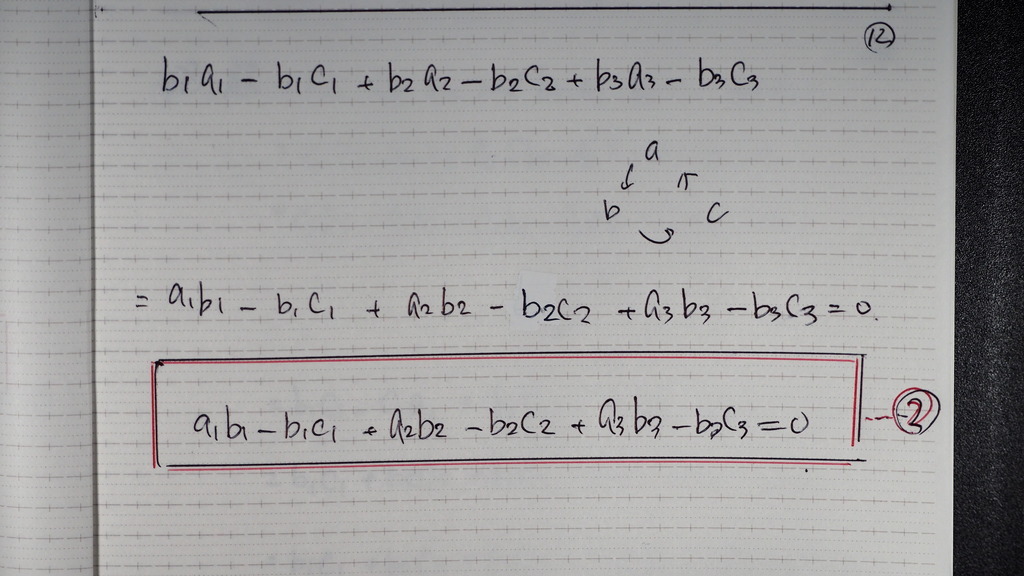 ⑫
b₁a₁ - b₁c₁ + b₂a₂ - b₂c₂ + b₃a₃ - b₃c₃
a
b c
= a₁b₁ - b₁c₁ + a₂b₂ - b₂c₂ + a₃b₃ - b₃c₃ = 0.
a₁b₁ - b₁c₁ + a₂b₂ - b₂c₂ + a₃b₃ - b₃c₃ = 0 --②